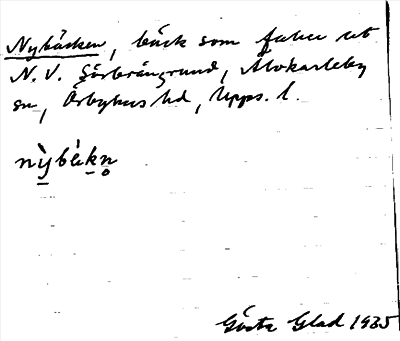 Nybäcken, bäck som faller ut
N. V. Sörbrängrund, Älvkarleby
sn, Örbyhus hd, Upps. l.
nỳbèkn̥
Gösta Glad 1935